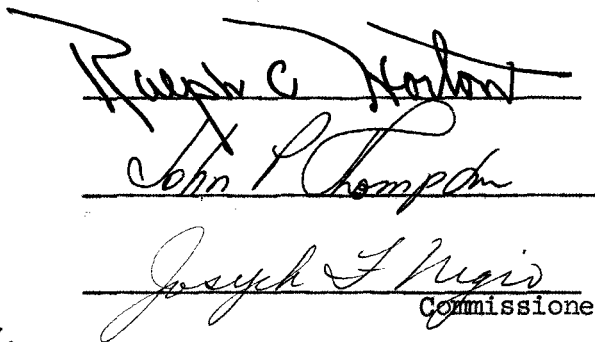 Ralph C Horton
John P Thompson
Joseph F Nigro
Commissione